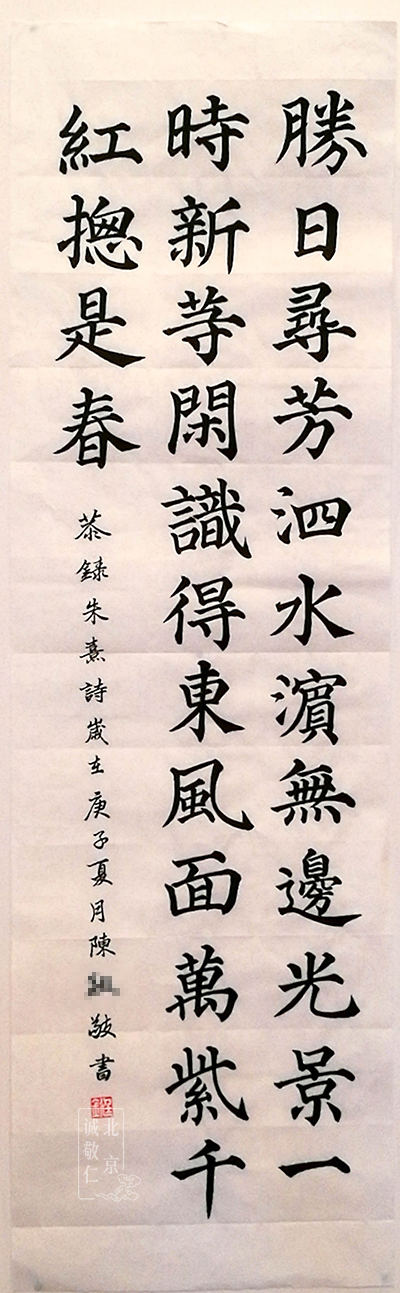 勝日尋芳泗水濱無邊光景一
時新䓁閑識得東風面萬紫千
紅揔是春
恭錄朱熹詩歲在庚子夏月陳
敬書
北京
诚敬仁